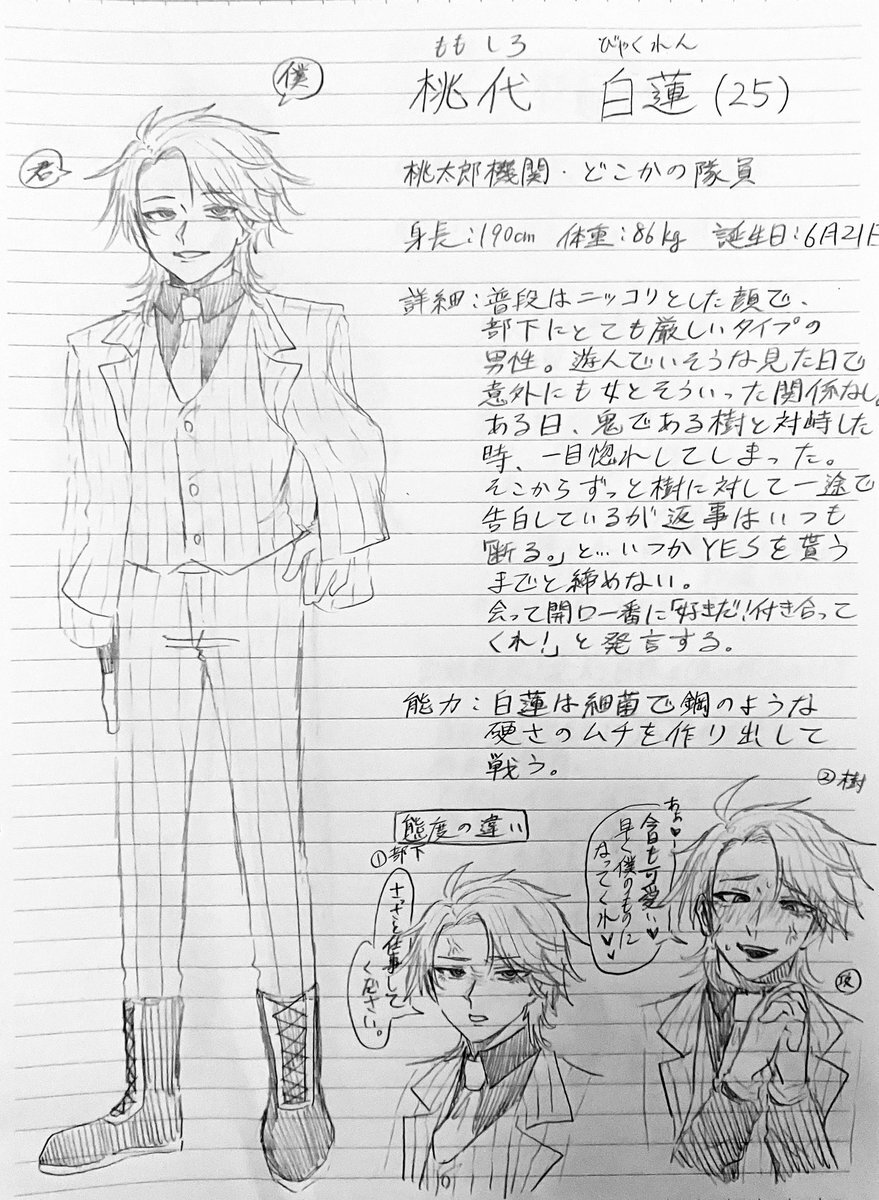 僕
君
ももしろ びゃくれん
桃代 白蓮(25)
桃太郎機関・どこかの隊員
身長:190cm 体重:86kg 誕生日:6月21日
詳細:普段はニッコリとした顔で、
部下にとても厳しいタイプの
男性。遊んでいそうな見た目で
意外にも女とそういった関係なし。
ある日、鬼である樹と対峙した
時、一目惚れしてしまった。
そこからずっと樹に対して一途で
告白しているが返事はいつも
「断る。」と…いつかYESを貰う
までと締めない。
会って開口一番に「好きだ!付き合って
くれ!」と発言する。
能力:白蓮は細菌で鋼のような
硬さのムチを作り出して
戦う。
態度の違い
①部下
さっさと仕事して
ください。
②樹
あぁ♥ー
今日も可愛い♥
早く僕のものに
なってくれ♥♥